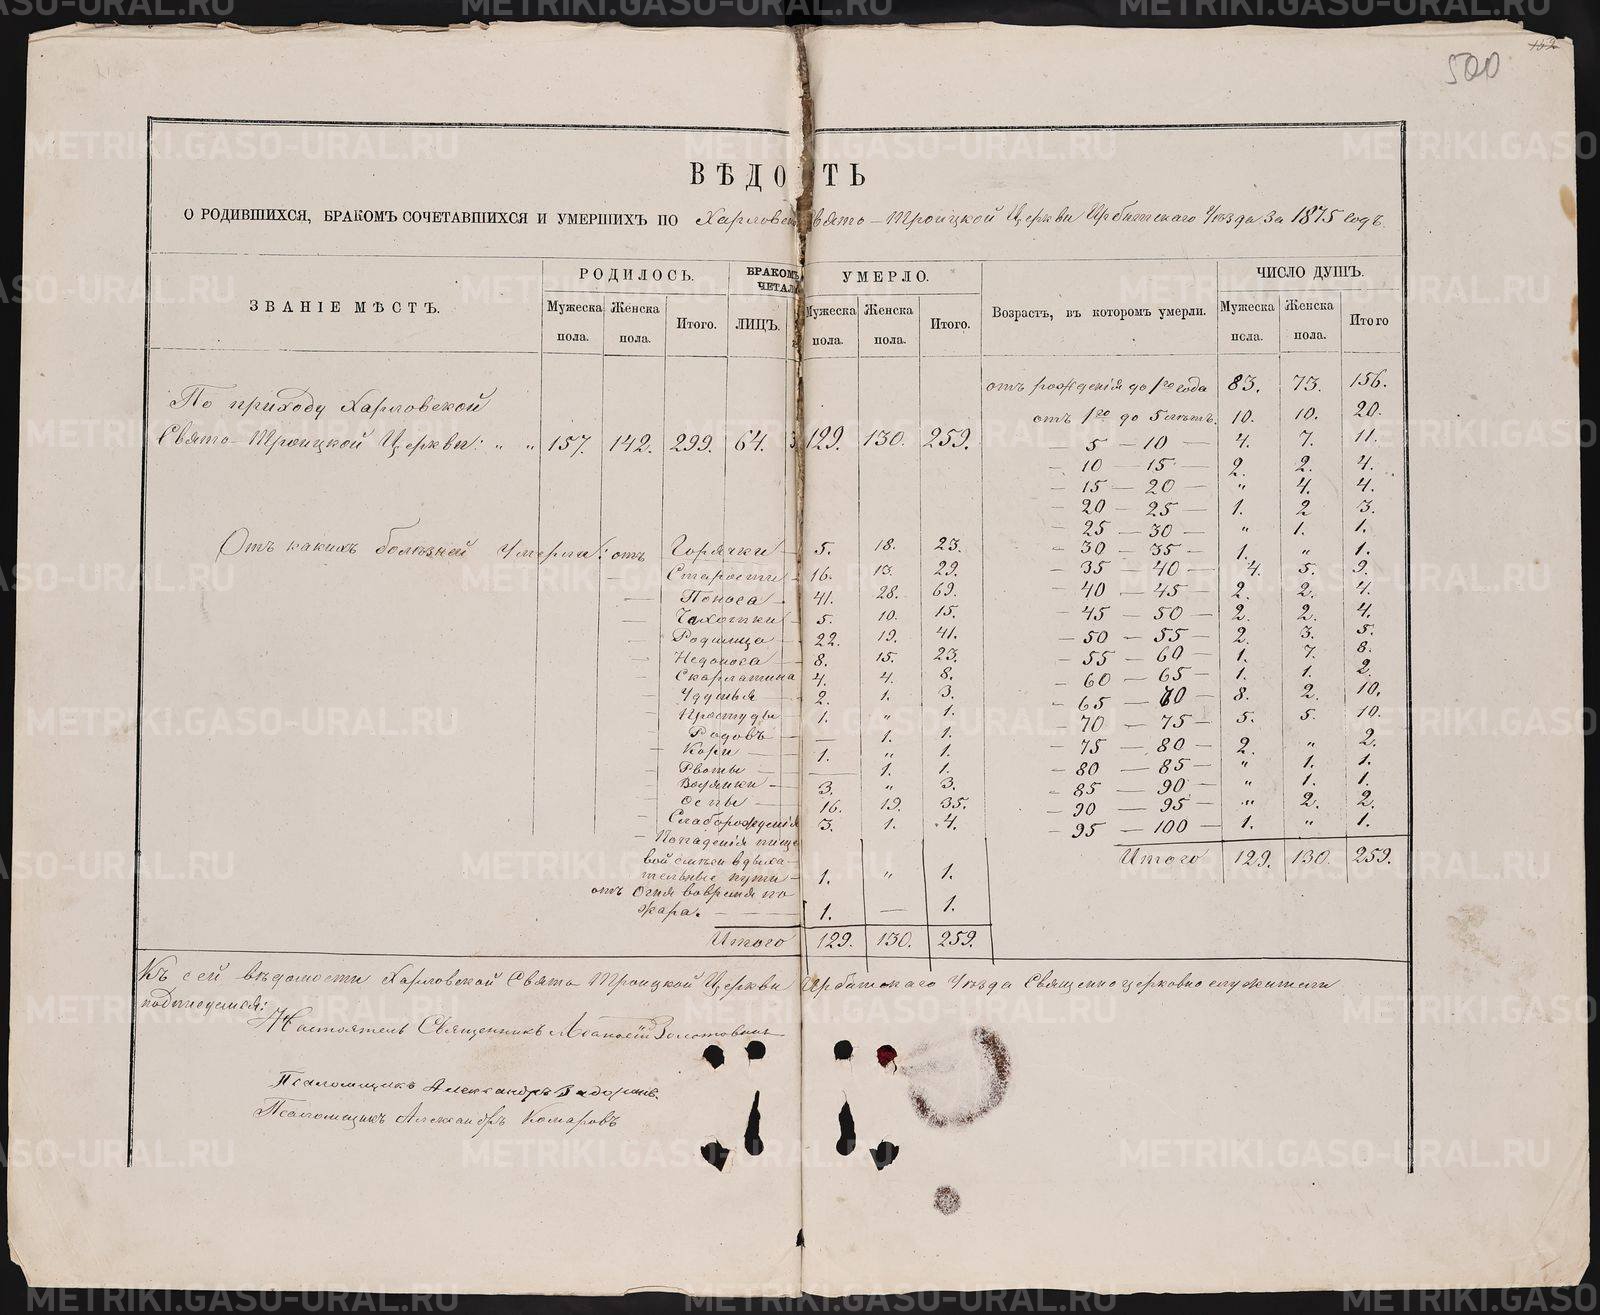 500
152
ВѢДО ТЬ
О РОДИВШИХСЯ, БРАКОМЪ СОЧЕТАВШИХСЯ И УМЕРШИХЪ ПО Харловской Свято-Троицкой Церкви Ирбитскаго Уѣзда за 1875 годъ
ЗВАНІЕ МѢСТЪ. РОДИЛОСЬ. БРАКОМЪ ЧЕТАЛ УМЕРЛО. Возрастъ, въ которомъ умерли. ЧИСЛО ДУШЪ.
Мужеска пола. Женска пола. Итого. ЛИЦЪ. Мужеска пола. Женска пола. Итого. Мужеска пола. Женска пола. Итого
По приходу Харловской
Свято-Троицкой Церкви: " " 157. 142. 299. 64. 129. 130. 259.
Отъ какихъ болѣзней умерли: отъ Горячки — 5. 18. 23.
— Старости — 16. 13. 29.
— Поноса — 41. 28. 69.
— Чахотки — 5. 10. 15.
— Родимца — 22. 19. 41.
— Недоноса — 8. 15. 23.
— Скарлатина 4. 4. 8.
— Удушья — 2. 1. 3.
— Простуды 1. " 1.
— Родовъ — — 1. 1.
— Кори — 1. " 1.
— Рвоты — — 1. 1.
— Водянки — 3. " 3.
— Оспы — 16. 19. 35.
— Слаборожденія 3. 1. 4.
— Попаденія пище
вой смѣси в дыха-
тельные пути — 1. " 1.
отъ Огня вовремя по
жара. — — — 1. — 1.
Итого 129. 130. 259.
отъ рожденія до 1го года 83. 73. 156.
отъ 1го до 5 лѣтъ. 10. 10. 20.
— 5 — 10 — 4. 7. 11.
— 10 — 15 — 2. 2. 4.
— 15 — 20 — " 4. 4.
— 20 — 25 — 1. 2 3.
— 25 — 30 — " 1. 1.
— 30 — 35 — 1. " 1.
— 35 — 40 — 4. 5. 9.
— 40 — 45 — 2. 2. 4.
— 45 — 50 — 2. 2. 4.
— 50 — 55 — 2. 3. 5.
— 55 — 60 — 1. 7. 8.
— 60 — 65 — 1. 1. 2.
— 65 — 70 — 8. 2. 10.
— 70 — 75 — 5. 5. 10.
— 75 — 80 — 2. " 2.
— 80 — 85 — " 1. 1.
— 85 — 90 — " 1. 1.
— 90 — 95 — " 2. 2.
— 95 — 100 — 1. " 1.
Итого 129. 130. 259.
Къ сей вѣдомости Харловской Свято Троицкой Церкви Ирбитскаго Уѣзда Священноцерковнослужители
подписуемся:
Настоятель Священникъ Аѳанасій Золотовинъ
Псаломщикъ Александръ Задоринъ.
Псаломщикъ Александръ Комаровъ
METRIKI.GASO-URAL.RU